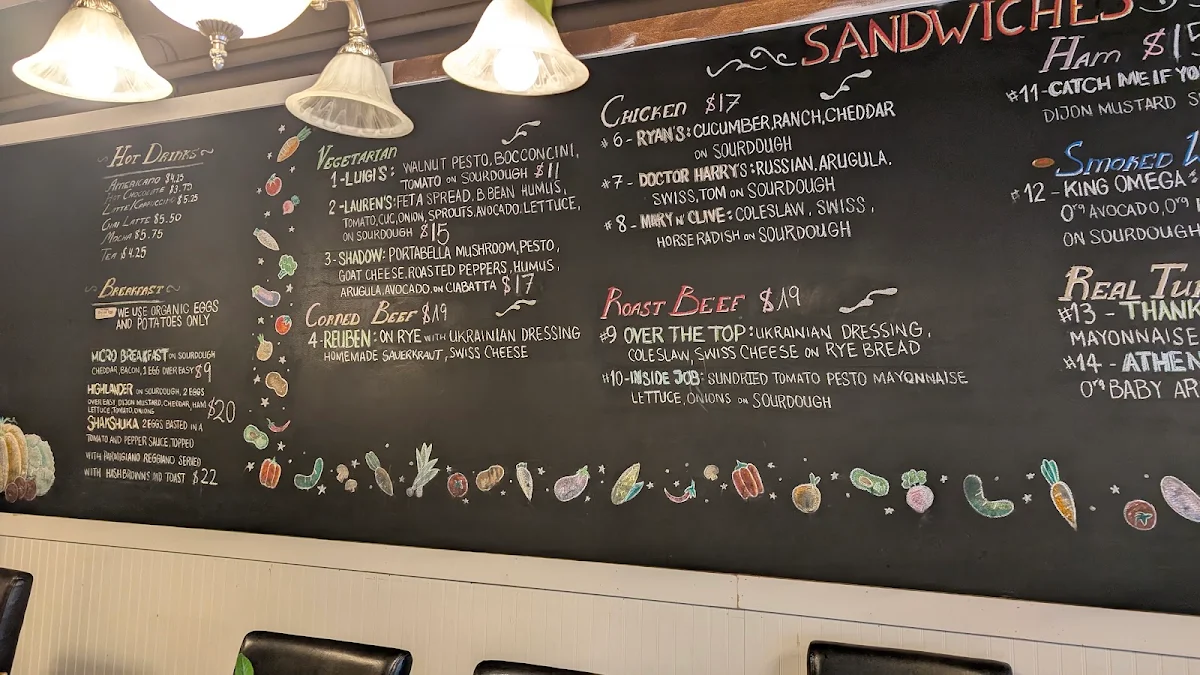 Hot Drinks
Americano $4.25
Hot Chocolate $3.75
Latte/Cappuccino $5.25
Chai Latte $5.50
Mocha $5.75
Tea $4.25
Breakfast
WE USE ORGANIC EGGS
AND POTATOES ONLY
MICRO BREAKFAST ON SOURDOUGH
CHEDDAR, BACON, 1 EGG OVER EASY $9
HIGHLANDER ON SOURDOUGH, 2 EGGS
OVER EAST, DIJON MUSTARD, CHEDDAR, HAM
LETTUCE, TOMATO, ONIONS $20
SHAKSHUKA 2 EGGS BASTED IN A
TOMATO AND PEPPER SAUCE, TOPPED
WITH PARMIGIANO REGGIANO SERVED
WITH HASHBROWNS AND TOAST $22
SANDWICHES
VEGETARIAN
1-LUIGI'S: WALNUT PESTO, BOCCONCINI,
TOMATO ON SOURDOUGH $11
2-LAUREN'S: FETA SPREAD, B.BEAN HUMUS,
TOMATO, CUC, ONION, SPROUTS, AVOCADO, LETTUCE,
ON SOURDOUGH $15
3-SHADOW: PORTABELLA MUSHROOM, PESTO,
GOAT CHEESE, ROASTED PEPPERS, HUMUS,
ARUGULA, AVOCADO, ON CIABATTA $17
CORNED BEEF $19
4-REUBEN: ON RYE WITH UKRAINIAN DRESSING
HOMEMADE SAUERKRAUT, SWISS CHEESE
CHICKEN $17
#6-RYAN'S: CUCUMBER, RANCH, CHEDDAR
ON SOURDOUGH
#7-DOCTOR HARRY'S: RUSSIAN, ARUGULA,
SWISS, TOM ON SOURDOUGH
#8-MARY N' CLIVE: COLESLAW, SWISS,
HORSERADISH ON SOURDOUGH
ROAST BEEF $19
#9 OVER THE TOP: UKRAINIAN DRESSING,
COLESLAW, SWISS CHEESE ON RYE BREAD
#10-INSIDE JOB: SUNDRIED TOMATO PESTO MAYONNAISE
LETTUCE, ONIONS ON SOURDOUGH
HAM $15
#11-CATCH ME IF YO
DIJON MUSTARD S
SMOKED
#12-KING OMEGA:
Org AVOCADO, Org
ON SOURDOUGH
REAL TU
#13-THANK
MAYONNAISE
#14-ATHEN
Org BABY AR